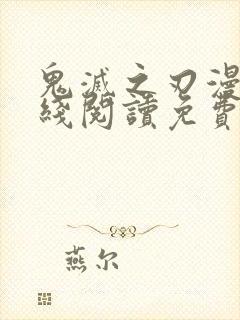 鬼滅之刃漫
綫閱讀免費
燕尔